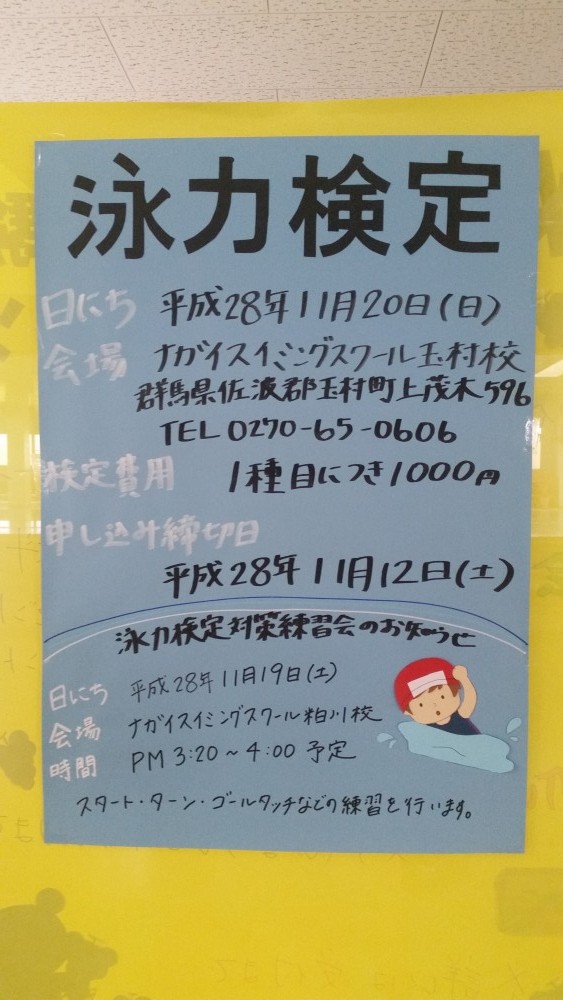 泳力検定
日にち 平成28年11月20日(日)
会場 ナガイスイミングスクール玉村校
群馬県佐波郡玉村町上茂木596
TEL 0270-65-0606
検定費用 1種目につき1000円
申し込み締切日
平成28年11月12日(土)
泳力検定対策練習会のお知らせ
日にち 平成28年11月19日(土)
会場 ナガイスイミングスクール粕川校
時間 PM 3:20～4:00 予定
スタート・ターン・ゴールタッチなどの練習を行います。